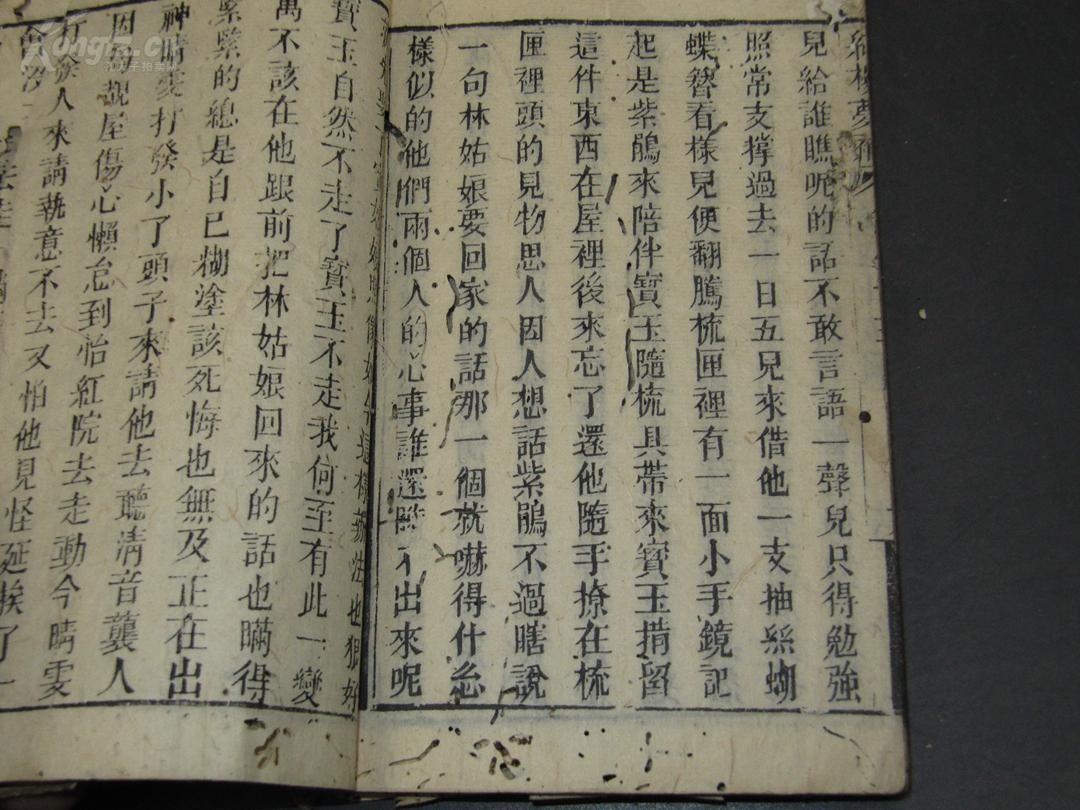 紅樓夢補
兒給誰瞧呢的話不敢言語一聲兒只得勉強
照常支撑過去一日五兒來借他一支抽絲蝴
蝶簪看樣兒便翻騰梳匣裡有一面小手鏡記
起是紫鵑來陪伴寳玉隨梳具帶來寳玉揹留
這件東西在屋裡後來忘了還他隨手撩在梳
匣裡頭的見物思人因人想話紫鵑不過瞎說
一句林姑娘要回家的話那一個就嚇得什么
樣似的他們兩個人的心事誰還瞧不出來呢
這樣辦法也狠好
寳玉自然不走了寳玉不走我何至有此一變
萬不該在他跟前把林姑娘回來的話也瞞得
緊緊的總是自己糊塗該死悔也無及正在出
神晴雯打發小了頭子來請他去聽清音襲人
因爲觀屋傷心懶怠到怡紅院去走動今晴雯
打發人來請執意不去又怕他見怪延挨了一